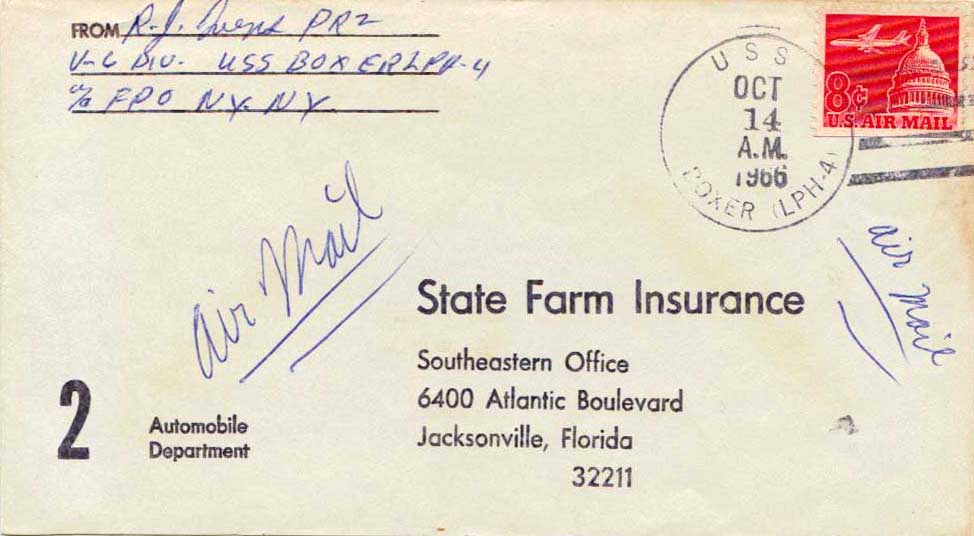 FROM R. J. PR2
V-6 DIV. USS BOXER LPH-4
c/o FPO NY. NY.
USS
OCT
14
A.M.
1966
BOXER (LPH-4)
8¢
U.S. AIR MAIL
air Mail
air Mail
State Farm Insurance
Southeastern Office
6400 Atlantic Boulevard
Jacksonville, Florida
32211
2
Automobile
Department